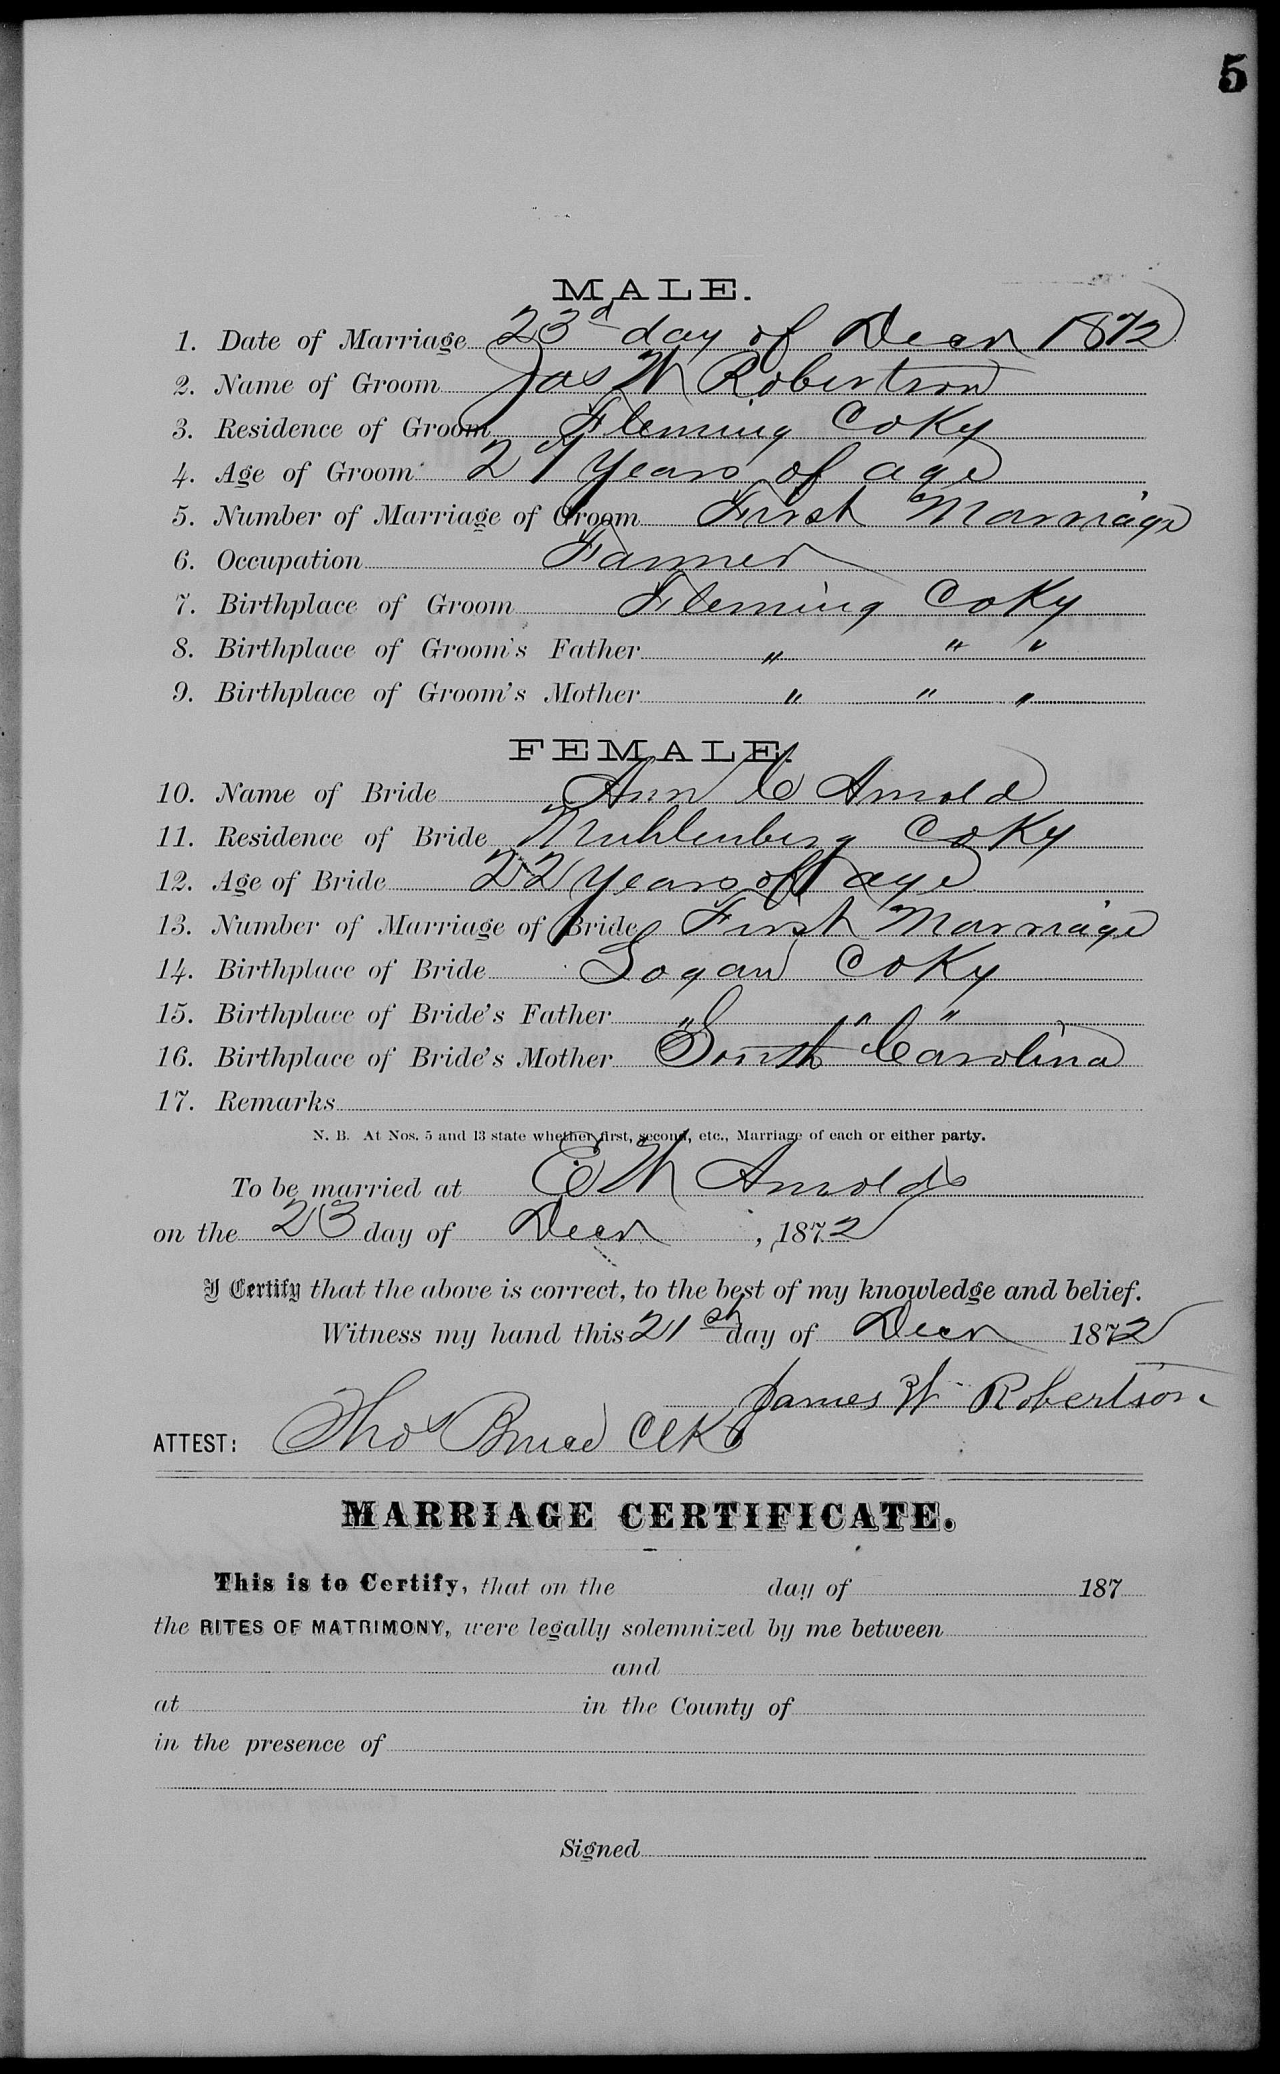 5
MALE.
1. Date of Marriage 23d day of Decr 1872
2. Name of Groom Jas W Robertson
3. Residence of Groom Fleming Co Ky
4. Age of Groom 27 years of age
5. Number of Marriage of Groom First Marriage
6. Occupation Farmer
7. Birthplace of Groom Fleming Co Ky
8. Birthplace of Groom's Father " " "
9. Birthplace of Groom's Mother " " "
FEMALE.
10. Name of Bride Ann C Arnold
11. Residence of Bride Muhlenberg Co Ky
12. Age of Bride 22 years of age
13. Number of Marriage of Bride First Marriage
14. Birthplace of Bride Logan Co Ky
15. Birthplace of Bride's Father " " "
16. Birthplace of Bride's Mother South Carolina
17. Remarks
N. B. At Nos. 5 and 13 state whether first, second, etc., Marriage of each or either party.
To be married at E W Arnolds
on the 23 day of Decr , 1872
I Certify that the above is correct, to the best of my knowledge and belief.
Witness my hand this 21st day of Decr 1872
James W Robertson
ATTEST: Thos Bruce Clk
MARRIAGE CERTIFICATE.
This is to Certify, that on the day of 187
the RITES OF MATRIMONY, were legally solemnized by me between
and
at in the County of
in the presence of
Signed